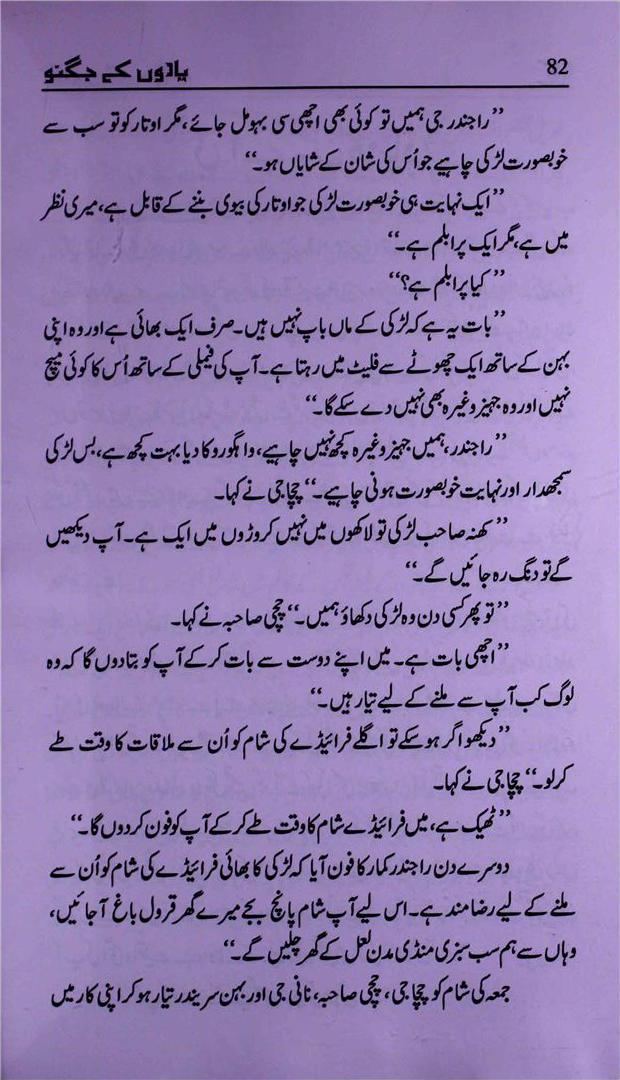 82
یادوں کے جگنو
”راجندر جی ہمیں تو کوئی بھی اچھی سی بہو مل جائے، مگر اوتار کو تو سب سے
خوبصورت لڑکی چاہیے جو اُس کی شان کے شایاں ہو۔“
”ایک نہایت ہی خوبصورت لڑکی جو اوتار کی بیوی بننے کے قابل ہے، میری نظر
میں ہے، مگر ایک پرابلم ہے۔“
”کیا پرابلم ہے؟“
”بات یہ ہے کہ لڑکی کے ماں باپ نہیں ہیں۔ صرف ایک بھائی ہے اور وہ اپنی
بہن کے ساتھ ایک چھوٹے سے فلیٹ میں رہتا ہے۔ آپ کی فیملی کے ساتھ اُس کا کوئی میچ
نہیں اور وہ جہیز وغیرہ بھی نہیں دے سکے گا۔“
”راجندر، ہمیں جہیز وغیرہ کچھ نہیں چاہیے، واہگورو کا دیا بہت کچھ ہے، بس لڑکی
سمجھدار اور نہایت خوبصورت ہونی چاہیے۔“ چچا جی نے کہا۔
”کھنہ صاحب لڑکی تو لاکھوں میں نہیں کروڑوں میں ایک ہے۔ آپ دیکھیں
گے تو دنگ رہ جائیں گے۔“
”تو پھر کسی دن وہ لڑکی دکھاؤ ہمیں۔“ چچی صاحبہ نے کہا۔
”اچھی بات ہے۔ میں اپنے دوست سے بات کر کے آپ کو بتا دوں گا کہ وہ
لوگ کب آپ سے ملنے کے لیے تیار ہیں۔“
”دیکھو اگر ہو سکے تو اگلے فرائیڈے کی شام کو اُن سے ملاقات کا وقت طے
کرلو۔“ چچا جی نے کہا۔
”ٹھیک ہے، میں فرائیڈے شام کا وقت طے کر کے آپ کو فون کر دوں گا۔“
دوسرے دن راجندر کمار کا فون آیا کہ لڑکی کا بھائی فرائیڈے کی شام کو اُن سے
ملنے کے لیے رضامند ہے۔ اس لیے آپ شام پانچ بجے میرے گھر قرول باغ آ جائیں،
وہاں سے ہم سب سبزی منڈی مدن لعل کے گھر چلیں گے۔“
جمعہ کی شام کو چچا جی، چچی صاحبہ، نانی جی اور بہن سریندر تیار ہو کر اپنی کار میں